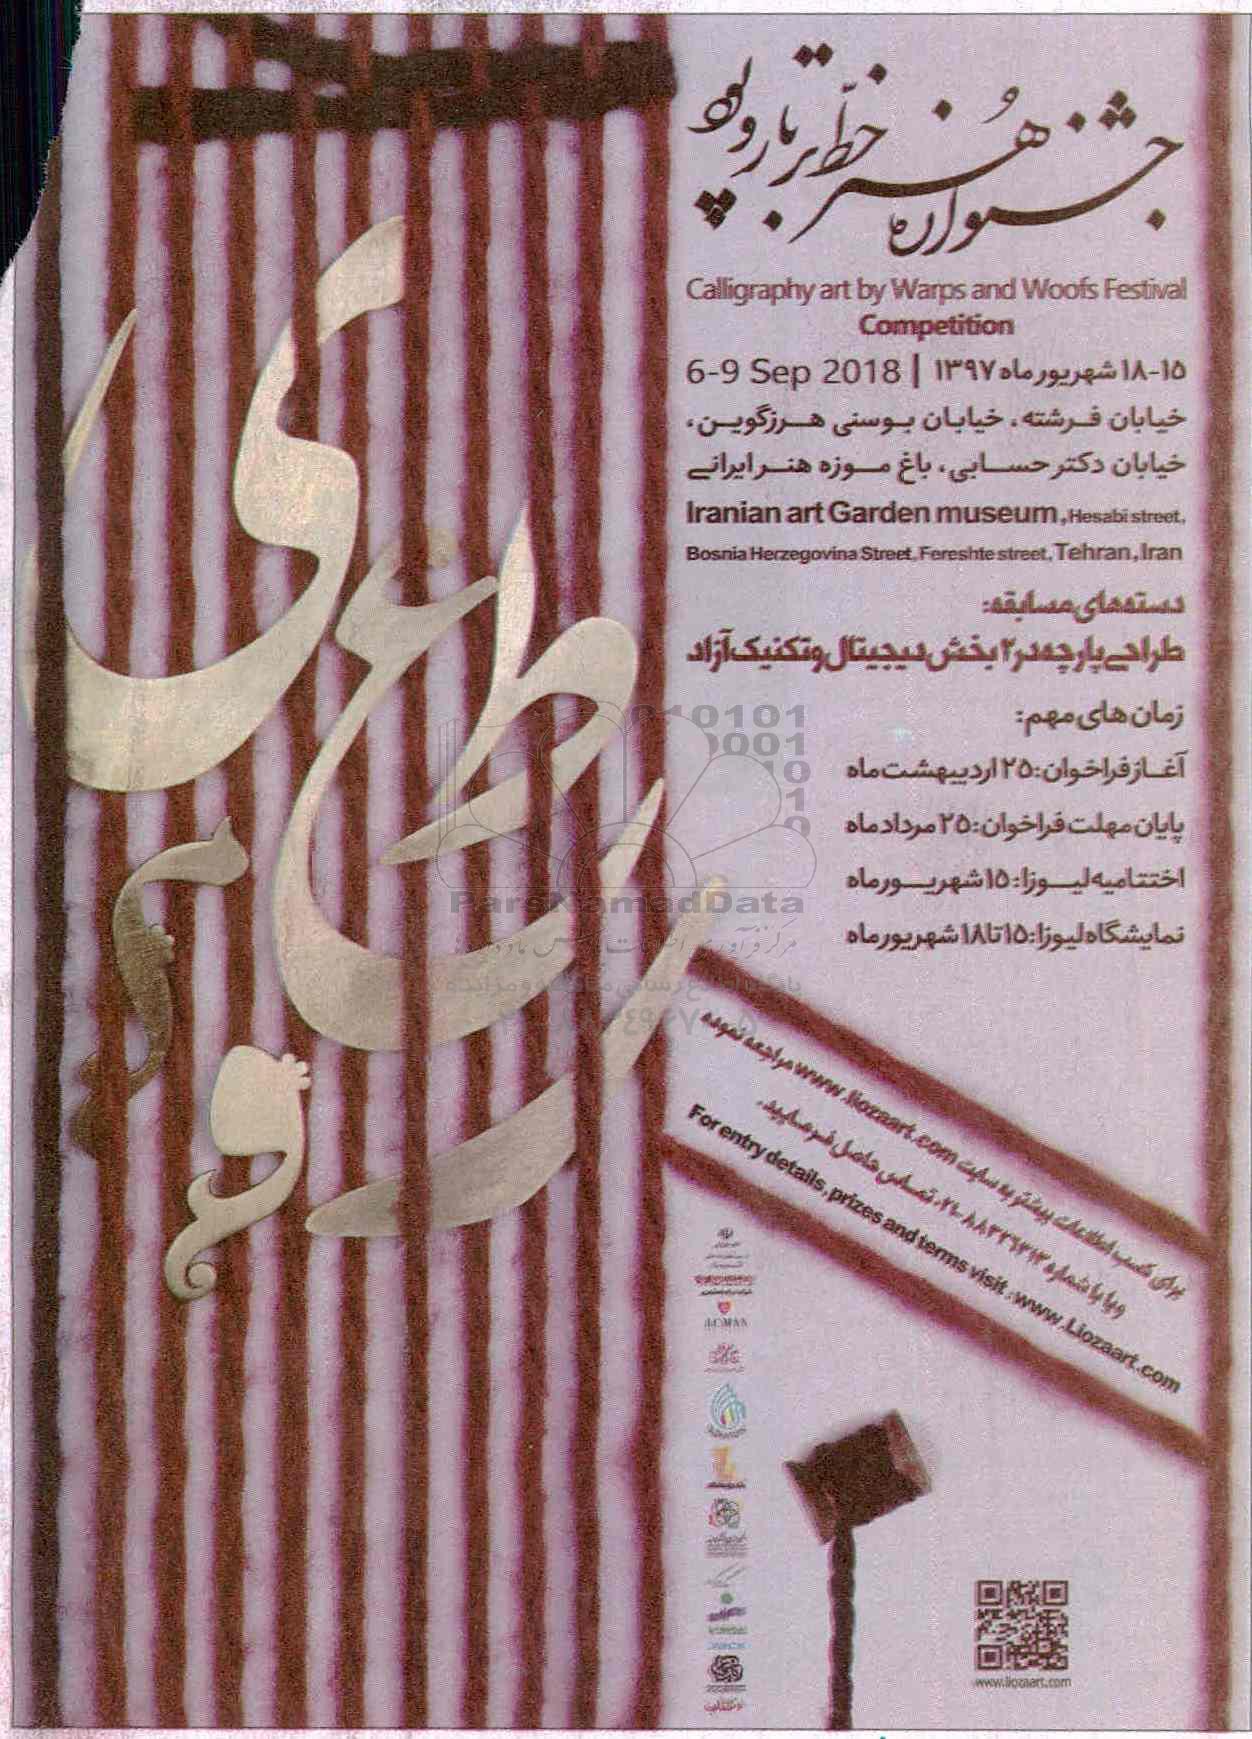 جشنواره هنر خط بر تار و پود
Calligraphy art by Warps and Woofs Festival
Competition
۱۵-۱۸ شهریور ماه ۱۳۹۷ | 6-9 Sep 2018
خیابان فرشته، خیابان بوسنی هرزگوین،
خیابان دکتر حسابی، باغ موزه هنر ایرانی
Iranian art Garden museum, Hesabi street,
Bosnia Herzegovina Street, Fereshte street, Tehran, Iran
دسته‌های مسابقه:
طراحی پارچه در ۲ بخش دیجیتال و تکنیک آزاد
زمان های مهم:
آغاز فراخوان: ۲۵ اردیبهشت ماه
پایان مهلت فراخوان: ۲۵ مرداد ماه
اختتامیه لیوزا: ۱۵ شهریور ماه
نمایشگاه لیوزا: ۱۵ تا ۱۸ شهریور ماه
ParsNamadData
برای کسب اطلاعات بیشتر به سایت www.liozaart.com مراجعه نموده
ویا با شماره ۸۸۳۲۶۳۱۳-۰۲۱ تماس حاصل فرمایید.
For entry details, prizes and terms visit: www.Liozaart.com
www.liozaart.com